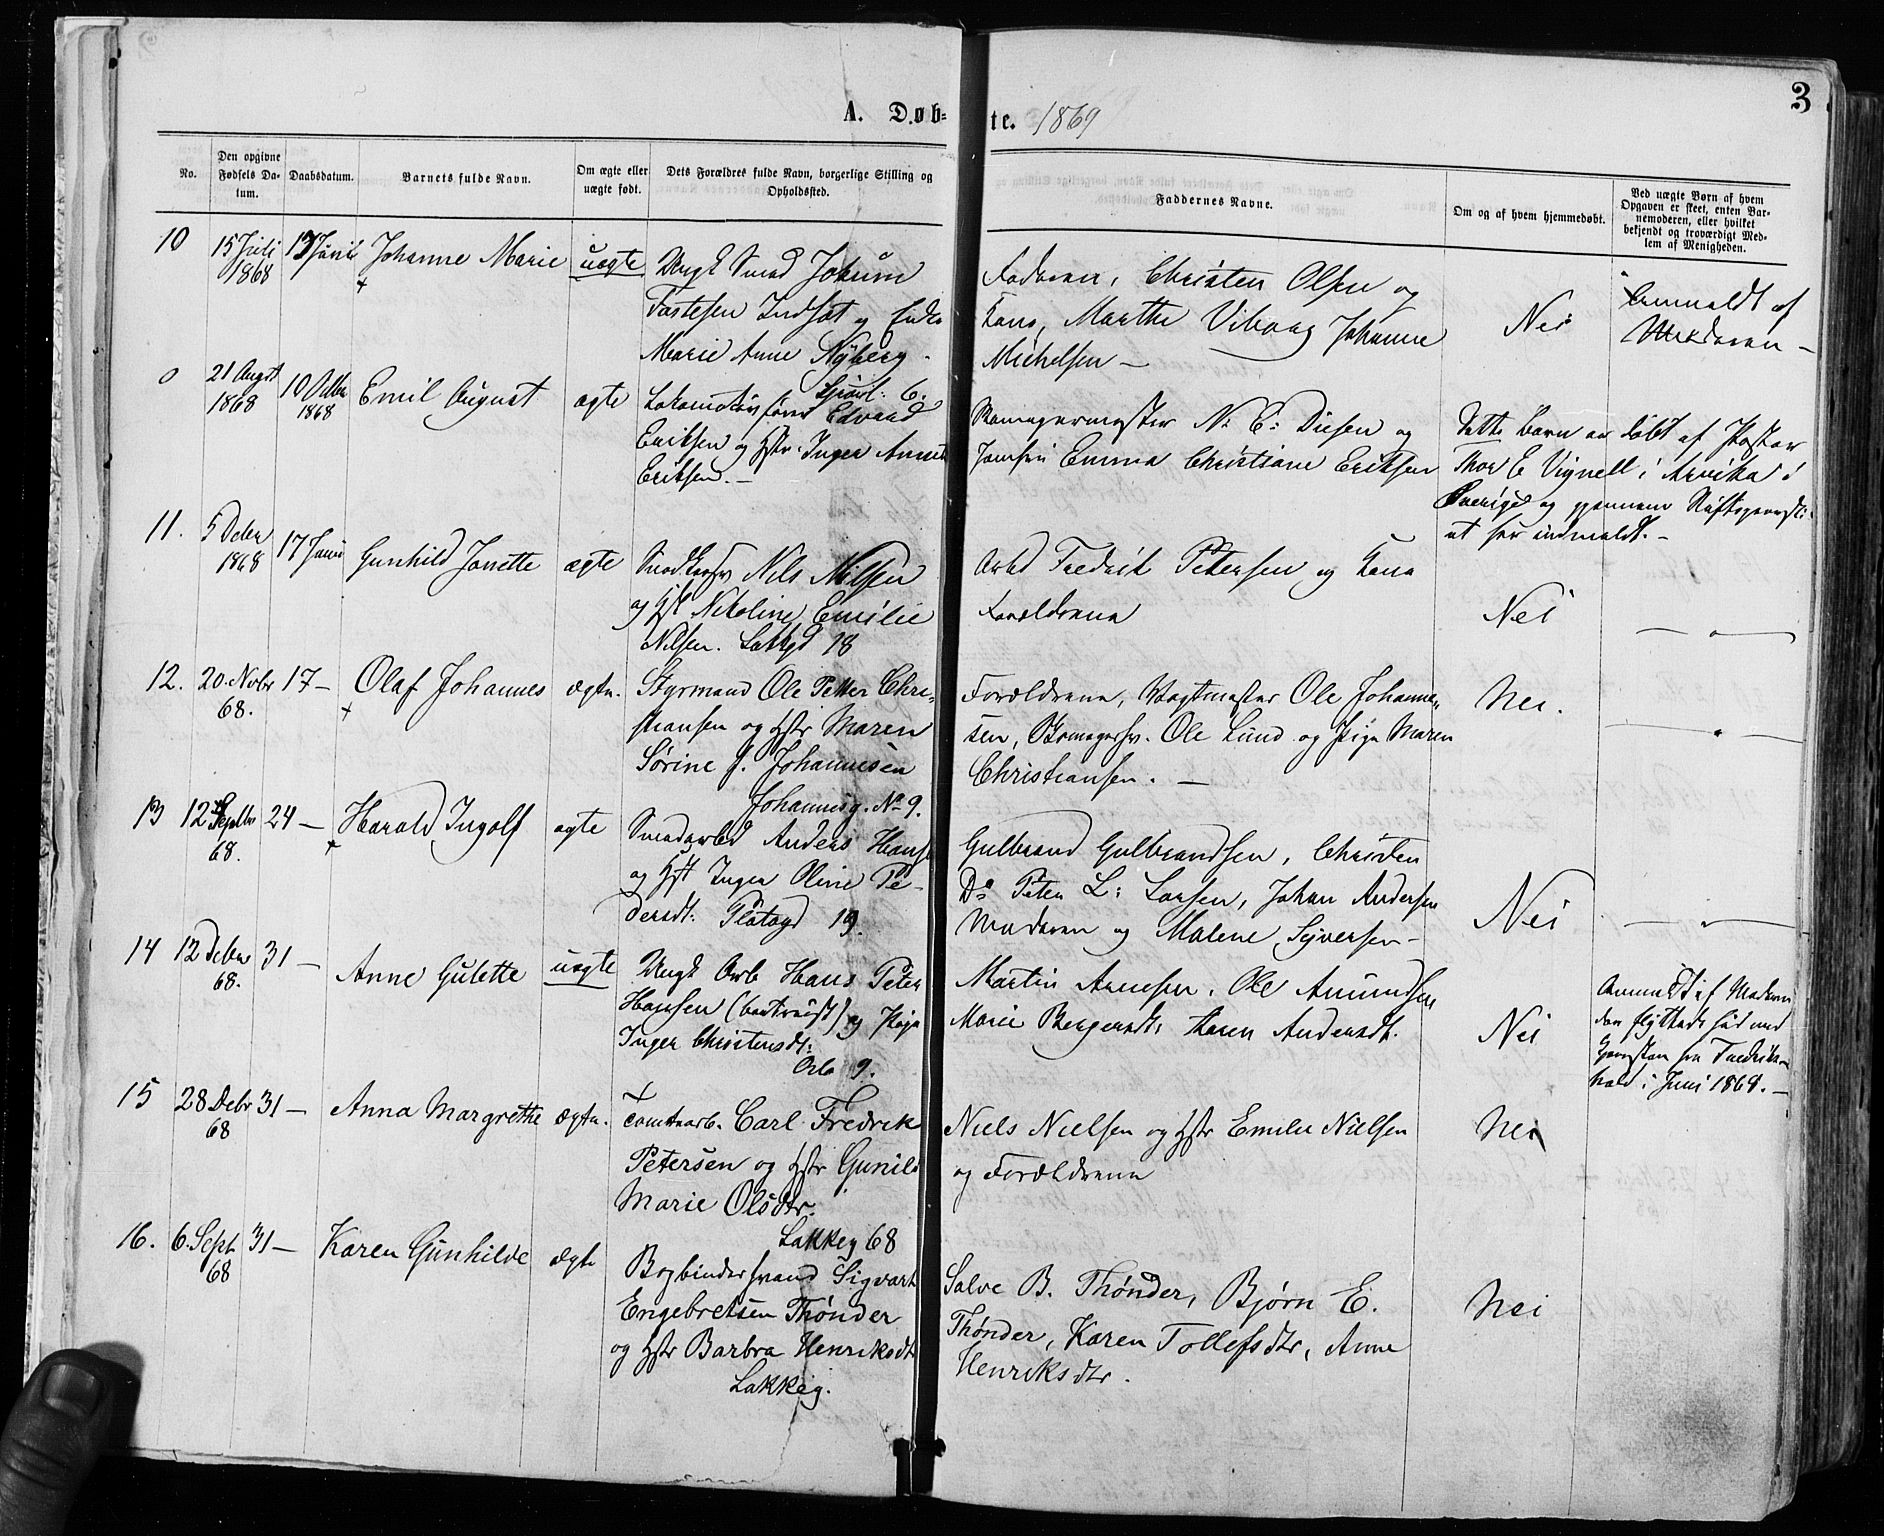 3
A. Døb-
te. 1869
No.
Den opgivne
Fødsels Da-
tum.
Daabsdatum.
Barnets fulde Navn.
Om ægte eller
uægte født.
Dets Forældres fulde Navn, borgerlige Stilling og
Opholdssted.
Faddernes Navne.
Om og af hvem hjemmedøbt.
Ved uægte Børn af hvem
Opgaven er skeet, enten Bar-
nemoderen, eller hvilket
bekjendt og troværdigt Med-
lem af Menigheden.
10
15 Juli
1868
Johanne Marie
uægte
Ungk Smed
Marie Anne Nyberg
Faderen, Christen Olsen og
Kone, Marthe Viborg Johanne
Michelsen —
Nei
Anmeldt af
Moderen —
0
21 Augst
1868
10 Octbr
1868
Emil August
ægte
Lokomotivfører Edvard
Eriksen og Hstr Inger
Eriksen. —
Skomagermester N. E. og
Jomfru Emma Christiane Eriksen
Dette Barn er døbt af Pastor
Thor E Vignell i Arvika i
Sverige og gjennem
at her indmeldt. —
11.
5 Decbr
1868
17 Janr
Gunhild Janette
ægte
Nils Nilsen
og Hst Nikoline Emilie
Nilsen. Lakkgd 18
Arbd Fredrik Petersen og Kone
Forældrene
Nei
— " —
12.
20. Novbr
68.
17 —
Olaf Johannes
ægte.
Styrmand Ole Petter Chri-
stiansen og Hstr Maren
Sørine f. Johannesen
Johannesg. No 9.
Forældrene, Vagtmester Ole Johanne-
sen, Skomagersv. Ole Lund og Pige Maren
Christiansen. —
Nei.
— " —
13
12 Septbr
68.
24 —
Harald Ingolf
ægte
Smedarbd Anders Hans
og Hst Inger Oline Pe-
dersdt. Platogd 19.
Gulbrand Gulbrandsen, Christen
Do Peter L: Larsen, Johan Andersen
Moderen og Malene Syversen —
Nei
— " —
14
12 Decbr
68.
31 —
Anne Gulette
uægte
Ungk Arb Hans Peter
Hansen (bortreist) og Pige
Inger Christensdt:
9.
Martin Arnesen, Ole Amundsen
Marie Bergersdt: Karen Andersdt.
Nei
Anmeldt af Moderen
der flyttede hid med
fra Fredriks-
hald i Juni 1868. —
15
28 Decbr
68
31 —
Anna Margrethe
ægte.
Tomtearb. Carl Fredrik
Petersen og Hstr Gunild
Marie Olsdtr.
Lakkeg 68
Niels Nielsen og Hstr Emilie Nielsen
og Forældrene
Nei
16.
6. Sept
68
31 —
Karen Gunhilde
ægte
Bogbindersvend Sigvart
Engebretsen Thønder
og Hstr Barbra Henriksdtr
Lakkeg.
Salve B. Thønder, Bjørn E.
Thønder, Karen Tollefsdtr, Anne
Henriksdtr.
Nei